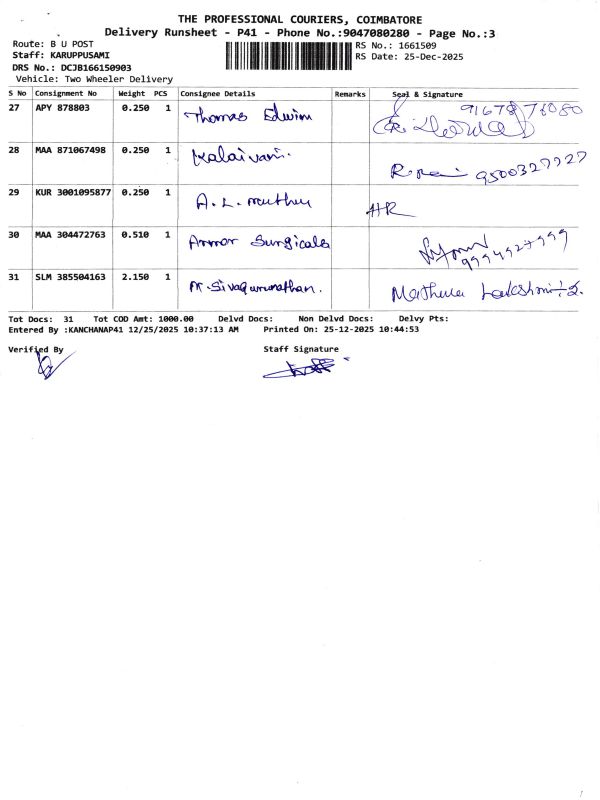 THE PROFESSIONAL COURIERS, COIMBATORE
Delivery Runsheet - P41 - Phone No.:9047080280 - Page No.:3
Route: B U POST
RS No.: 1661509
Staff: KARUPPUSAMI
RS Date: 25-Dec-2025
DRS No.: DCJB166150903
Vehicle: Two Wheeler Delivery
S No Consignment No Weight PCS Consignee Details Remarks Seal & Signature
27 APY 878803 0.250 1 Thomas Edwin
28 MAA 871067498 0.250 1 Kalaivani. 9500327727
29 KUR 3001095877 0.250 1 A. L. Muthu HR
30 MAA 304472763 0.510 1 Armor Surgicals 9994927999
31 SLM 385504163 2.150 1 M. Sivagurunathan. Mathula Lakshmi
Tot Docs: 31 Tot COD Amt: 1000.00 Delvd Docs: Non Delvd Docs: Delvy Pts:
Entered By :KANCHANAP41 12/25/2025 10:37:13 AM Printed On: 25-12-2025 10:44:53
Verified By Staff Signature